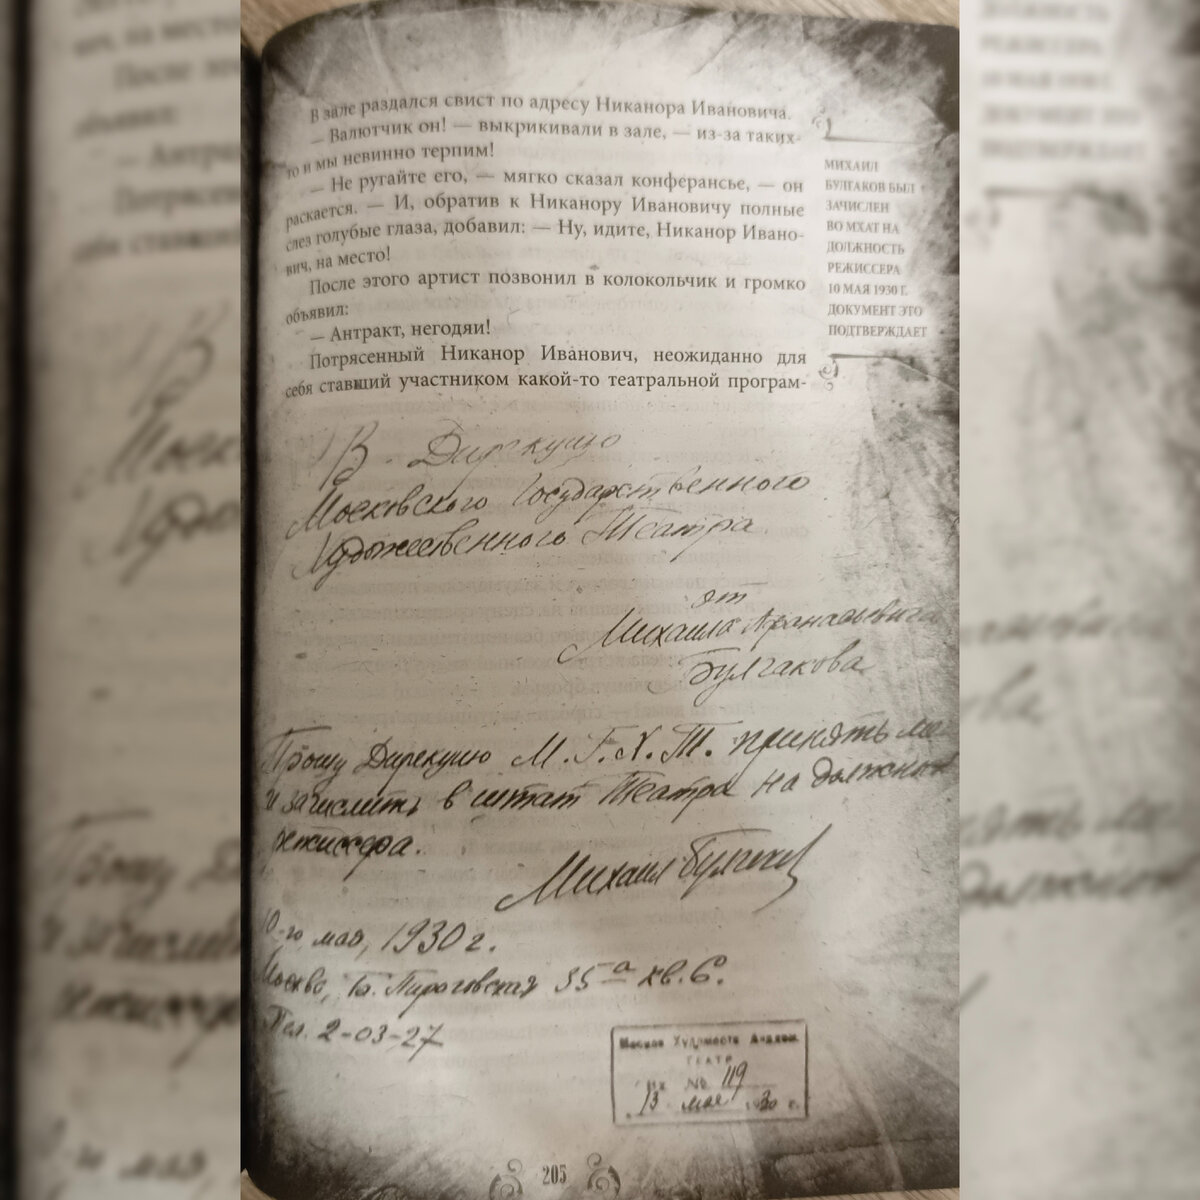 В зале раздался свист по адресу Никанора Ивановича.
— Валютчик он! — выкрикивали в зале, — из-за таких-
то и мы невинно терпим!
— Не ругайте его, — мягко сказал конферансье, — он
раскается. — И, обратив к Никанору Ивановичу полные
слез голубые глаза, добавил: — Ну, идите, Никанор Ивано-
вич, на место!
После этого артист позвонил в колокольчик и громко
объявил:
— Антракт, негодяи!
Потрясенный Никанор Иванович, неожиданно для
себя ставший участником какой-то театральной програм-
МИХАИЛ
БУЛГАКОВ БЫЛ
ЗАЧИСЛЕН
ВО МХАТ НА
ДОЛЖНОСТЬ
РЕЖИССЕРА
10 МАЯ 1930 Г.
ДОКУМЕНТ ЭТО
ПОДТВЕРЖДАЕТ
В Дирекцию
Московского Государственного
Художественного Театра
от
Михаила Афанасьевича
Булгакова
Прошу Дирекцию М.Г.Х.Т. принять ме-
и зачислить в штат Театра на должност
режиссера.
Михаил Булгаков
10-го мая, 1930 г.
Москва, Б. Пироговская 35а кв. 6.
Тел. 2-03-27
Москов Художеств Академ.
ТЕАТР
Вх № 119
13 мая 1930 г.
205